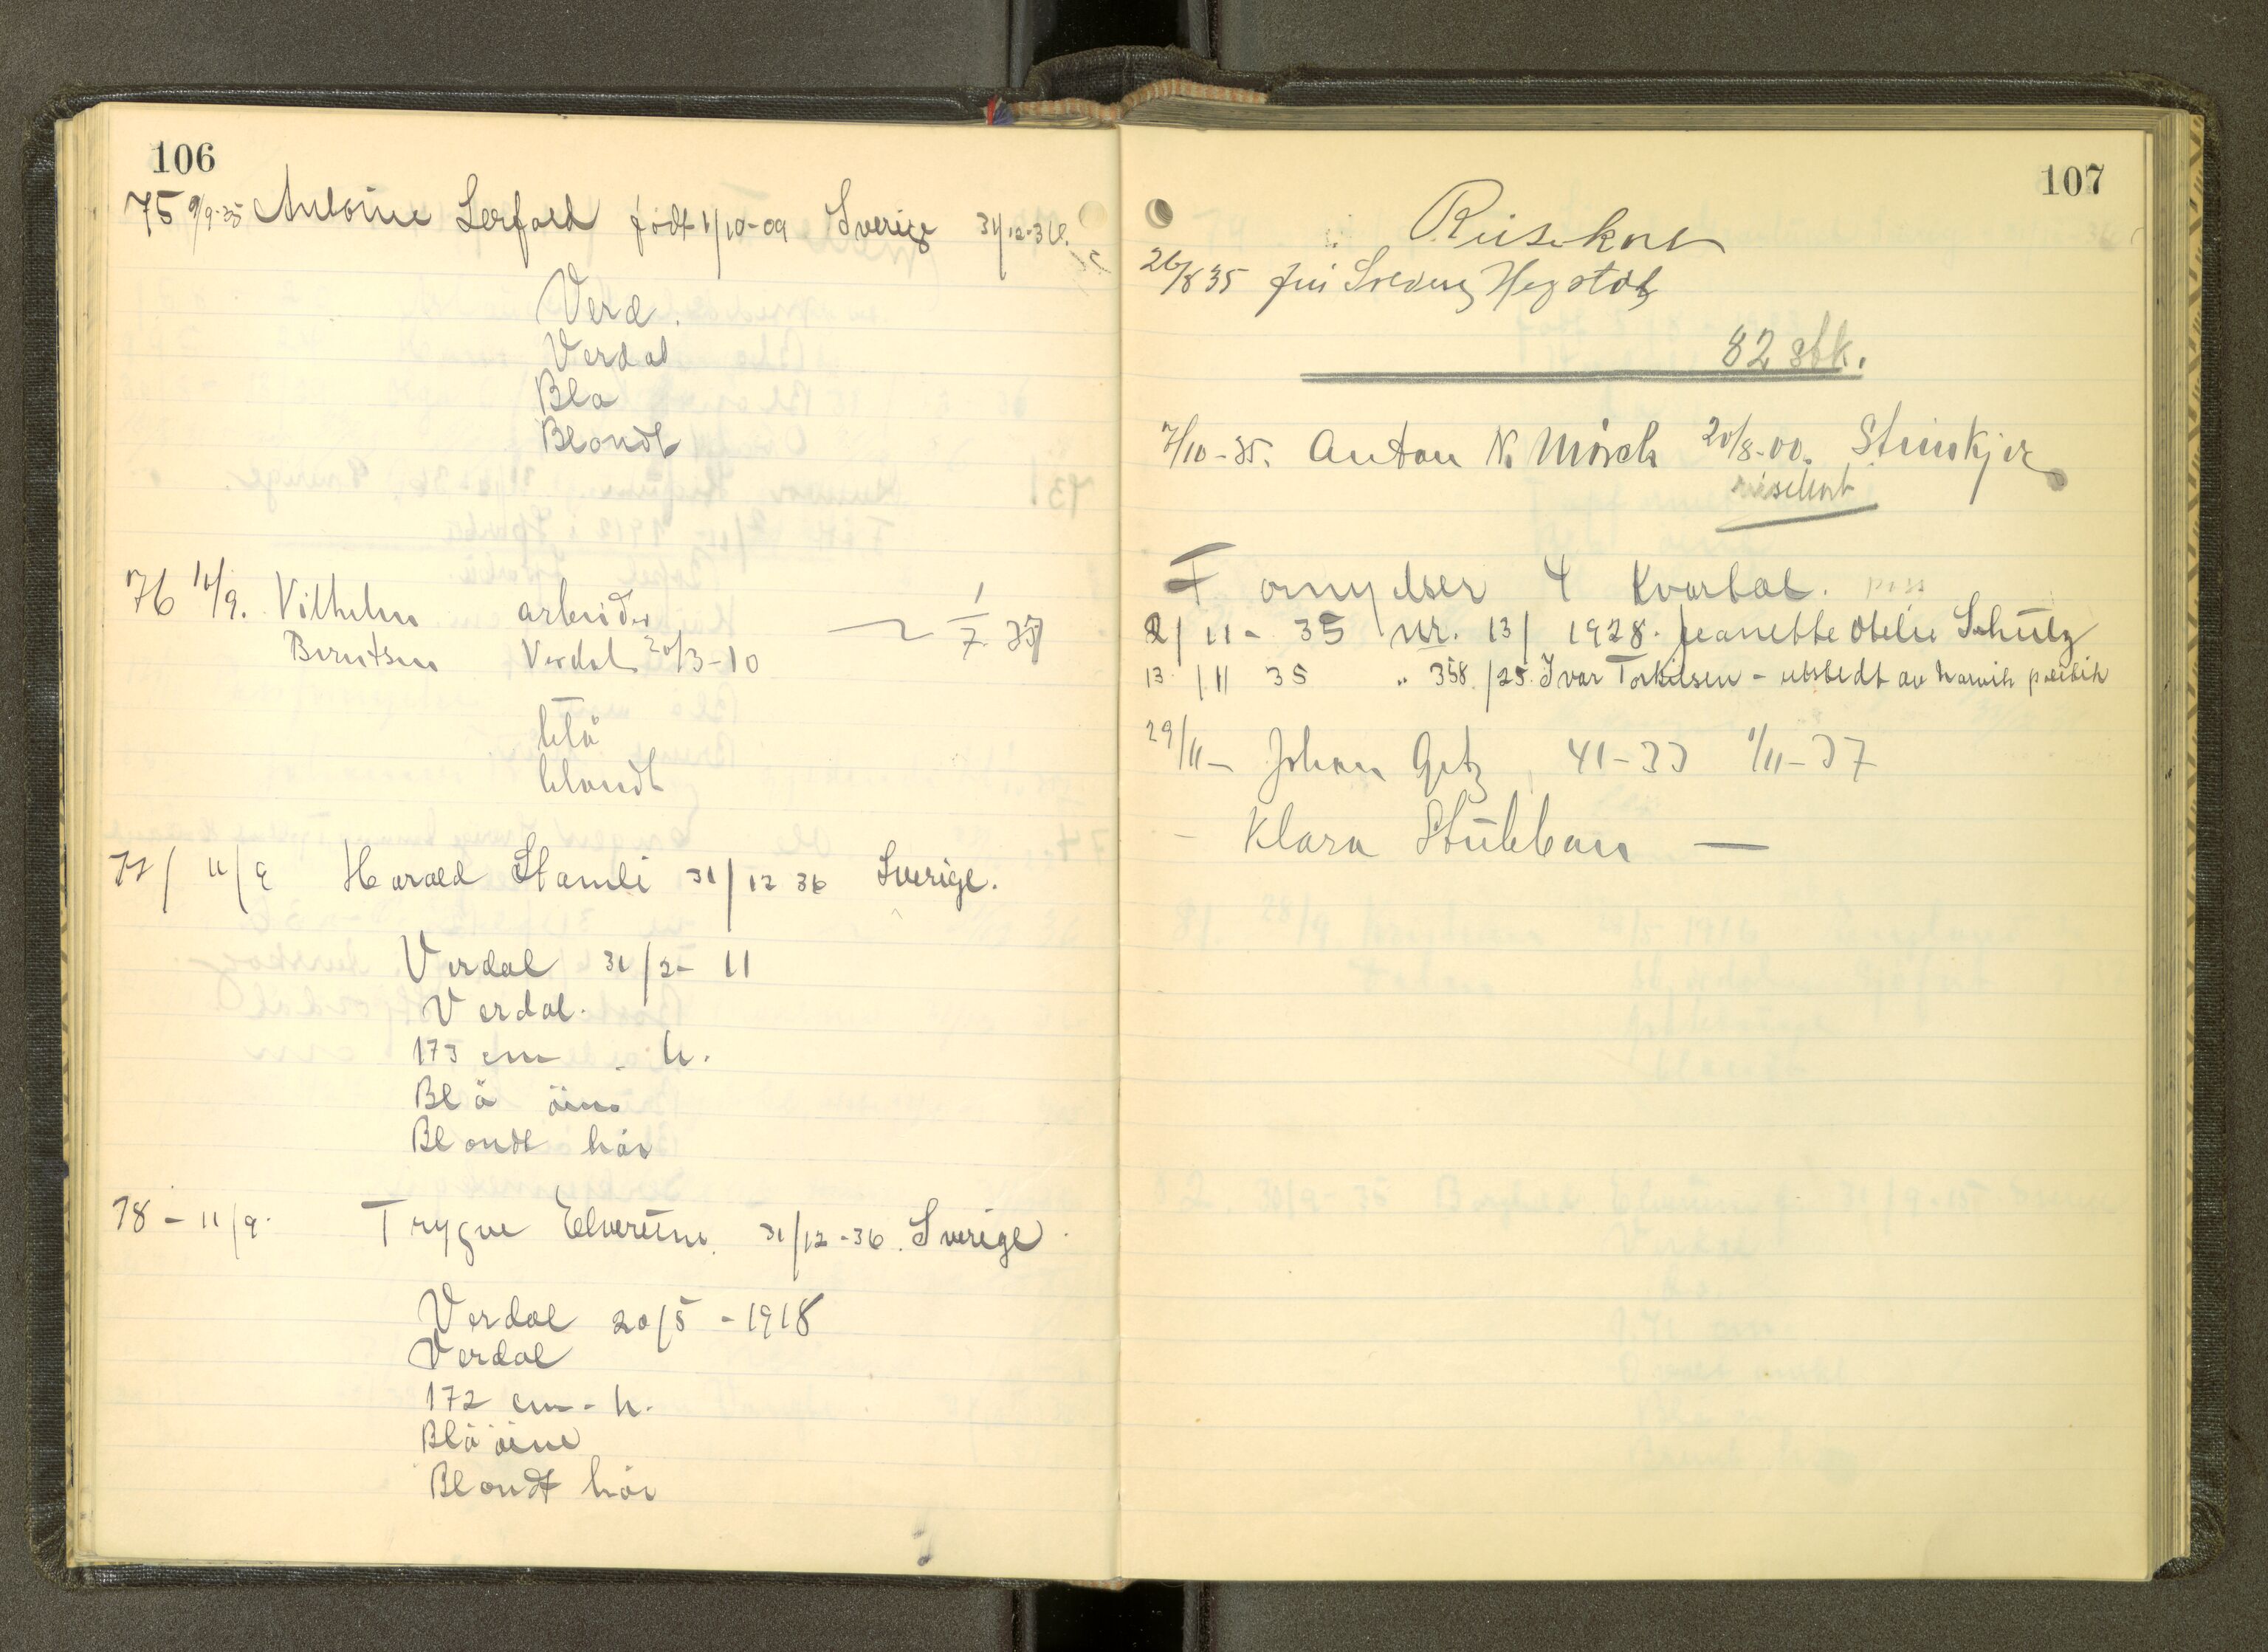 106
75 9/9-35 Antonie Lerfald født 1/10-09 Sverige 31/12-36.
Verd.
Verdal
Blå
Blondt
76 10/9. Vilhelm arbeider 1/7 37
Berntsen Verdal 20/3-10
blå
blondt
77/ 11/9 Harald Stamli 31/12 36 Sverige.
Verdal 31/2-11
Verdal.
173 cm h.
Blå öine
Blondt hår
78-11/9. Trygve Elverum. 31/12-36. Sverige.
Verdal 20/5-1918
Verdal
172 cm-h.
Blå öine
Blondt hår
107
Reisekort
26/8 35 Hegstad
82 stk.
7/10-35. Anton N. Mörch 20/8-00. Steinkjer
reisekort
Fornyelser 4 Kvartal. pass
2/11-35 nr. 13/1928. Jeanette Otelie Schulz
13/11 35 " 358/25. Ivar Torkilsen - utstedt av Narvik politik
29/11- Johan Getz, 41-33 1/11-37
- Klara Stubban —